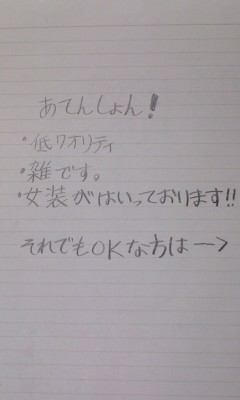 あてんしょん!
・低クオリティ
・雑です。
・女装がはいっております!!
それでもOKな方は→